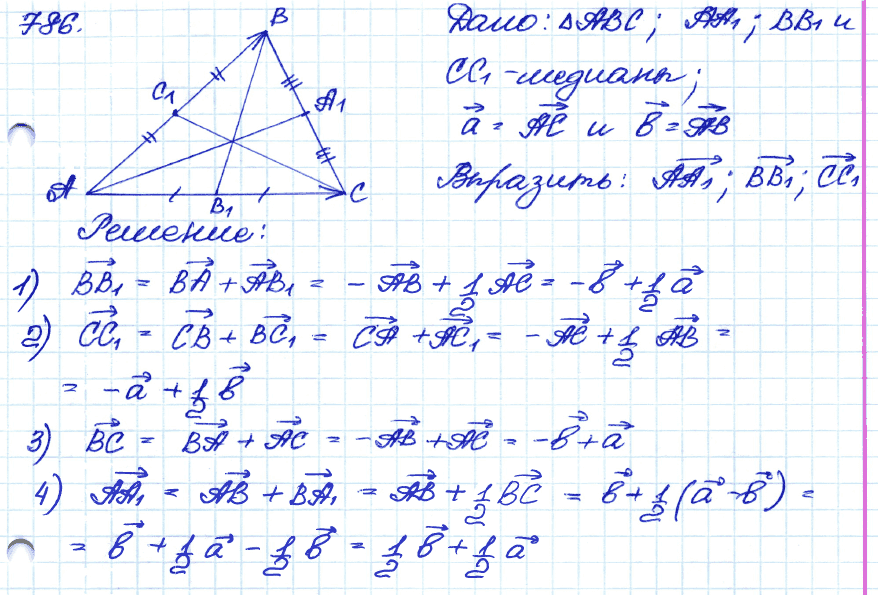 786.
B
C₁
A₁
A
B₁
C
Дано: △ABC; AA₁; BB₁ и
CC₁ - медианы;
a⃗ = AC⃗ и b⃗ = AB⃗
Выразить: AA₁⃗; BB₁⃗; CC₁⃗
Решение:
1) BB₁⃗ = BA⃗ + AB₁⃗ = - AB⃗ + 1/2 AC⃗ = - b⃗ + 1/2 a⃗
2) CC₁⃗ = CB⃗ + BC₁⃗ = CA⃗ + AC₁⃗ = - AC⃗ + 1/2 AB⃗ =
= - a⃗ + 1/2 b⃗
3) BC⃗ = BA⃗ + AC⃗ = - AB⃗ + AC⃗ = - b⃗ + a⃗
4) AA₁⃗ = AB⃗ + BA₁⃗ = AB⃗ + 1/2 BC⃗ = b⃗ + 1/2 (a⃗ - b⃗) =
= b⃗ + 1/2 a⃗ - 1/2 b⃗ = 1/2 b⃗ + 1/2 a⃗